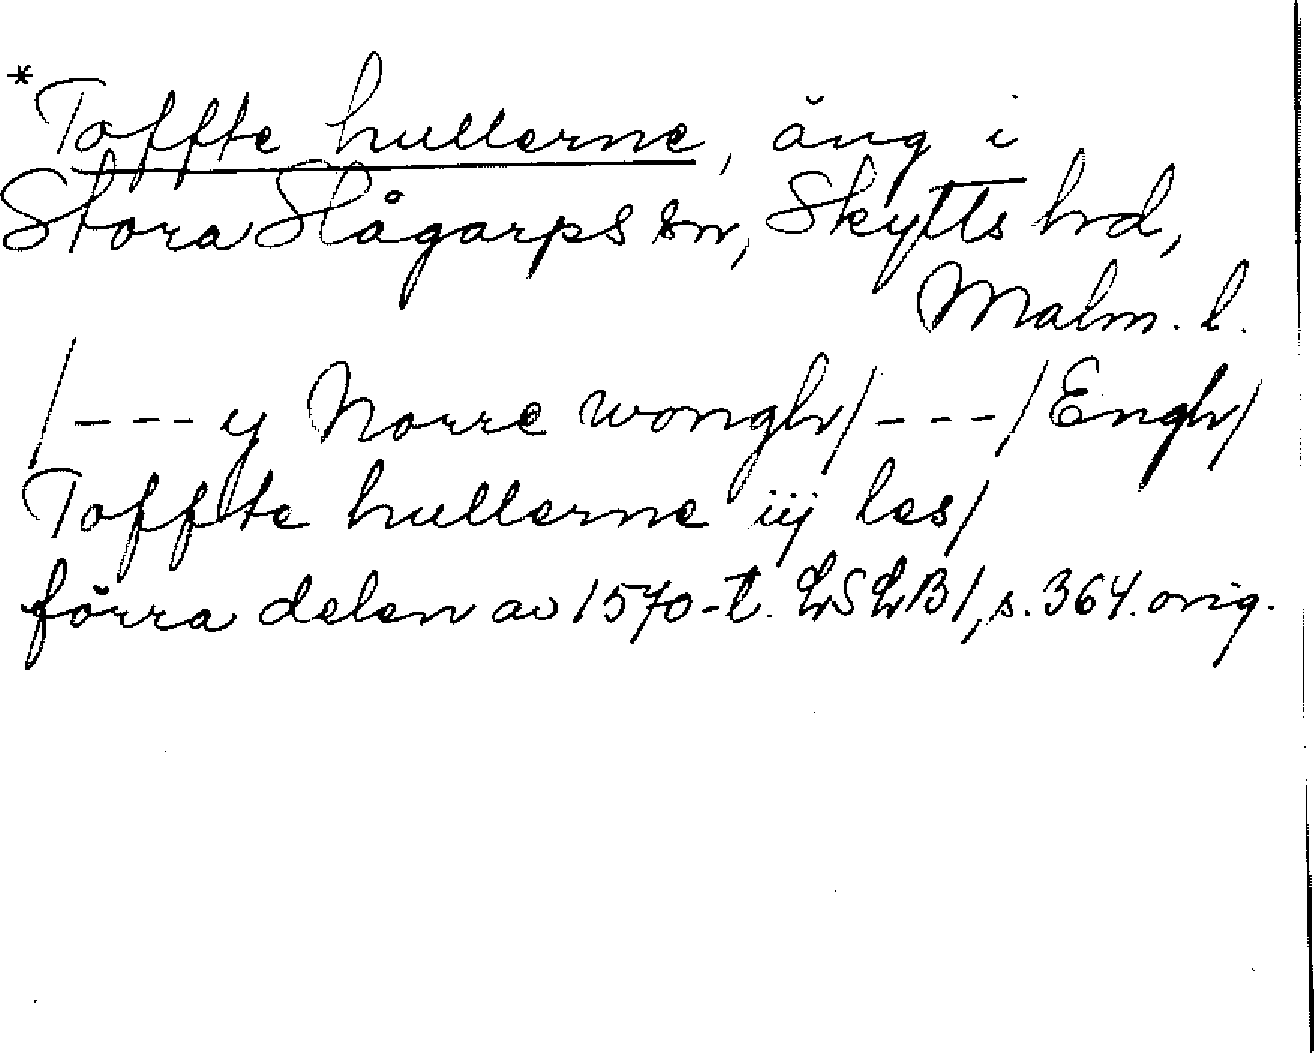 *Toffte hullerne, äng i
Stora Slågarps sn, Skytts hd,
Malm. l.
/---y Norre wongh/---/Engh/
Toffte hullerne iij les/
förra delen av 1570-t. LSLB1, s. 364. orig.